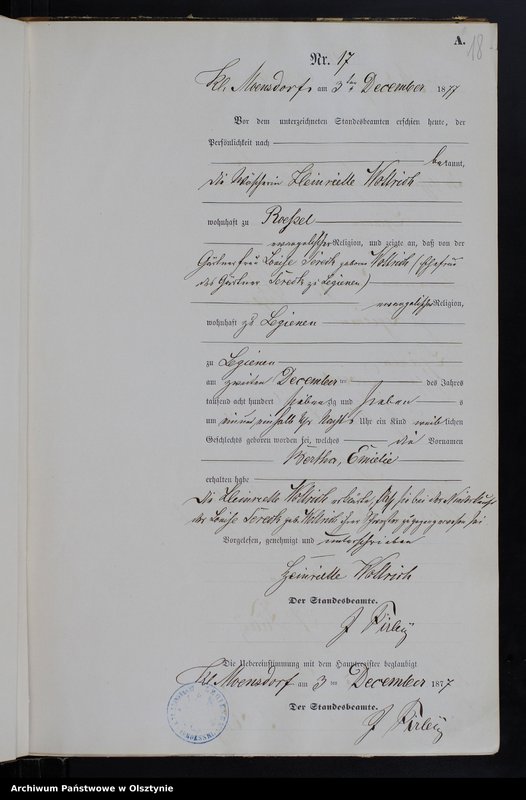 A.
18
Nr. 17
Kl. Moensdorf, am 3ten December 1877
Vor dem unterzeichneten Standesbeamten erschien heute, der
Persönlichkeit nach
bekannt,
die Henriette Wollrich
wohnhaft zu Roessel
evangelischer Religion, und zeigte an, daß von der
Gärtnerfrau Louise geborne Wollrich (Ehefrau
des Gärtner zu Legienen)
evangelischer Religion,
wohnhaft zu Legienen
zu Legienen
am zweiten December ten des Jahres
tausend acht hundert siebenzig und sieben s
um neun einhalb Uhr Nachts Uhr ein Kind weiblichen
Geschlechts geboren worden sei, welches die Vornamen
Bertha, Emielie
erhalten habe
Die Henriette Wollrich erklärte, daß sie bei der Niederkunft
der Louise geb. Wollrich ihrer zugegen gewesen sei
Vorgelesen, genehmigt und unterschrieben
Heinriette Wollrich
Der Standesbeamte.
J Firley
Die Uebereinstimmung mit dem Hauptregister beglaubigt
Kl Moensdorf am 3 ten December 1877
Der Standesbeamte.
J Firley
Archiwum Państwowe w Olsztynie